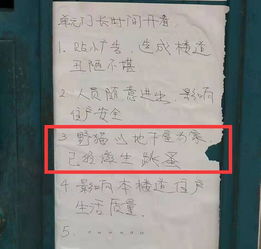 单元门长时间开着.
1. 贴小广告, 造成楼道
丑陋不堪
2. 人员随意进出, 影响
住户安全
3. 野猫当地下室为家
已经滋生 跳蚤
4. 影响本楼道住户
生活质量.
5. ......